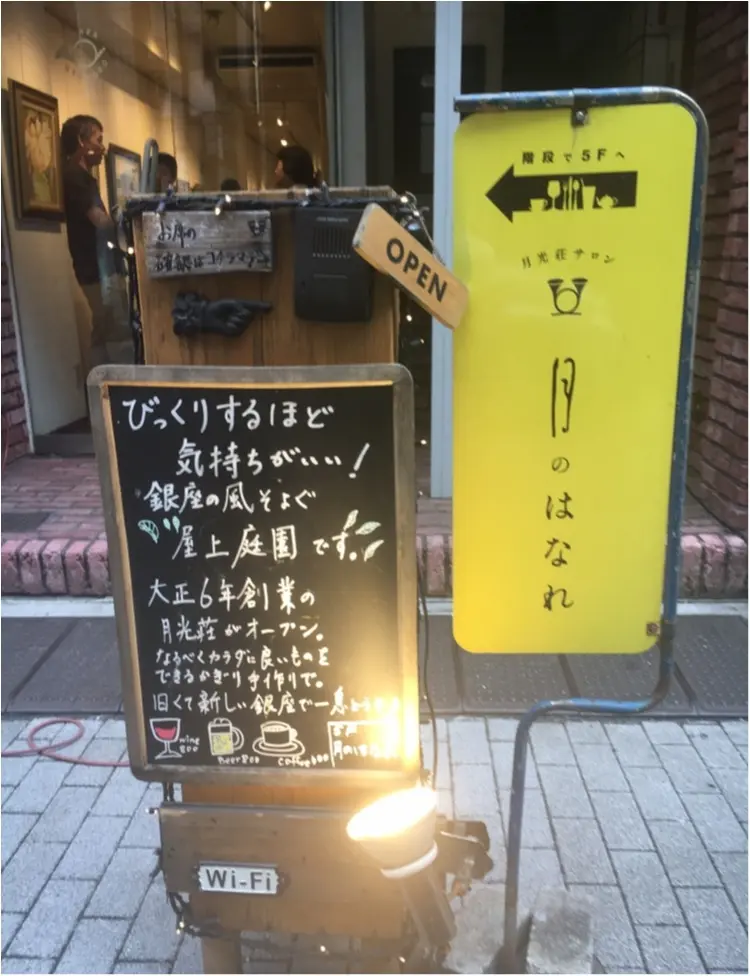 お席の
確認はコチラマデ
OPEN
びっくりするほど
気持ちがいい!
銀座の風そよぐ
屋上庭園です。
大正6年創業の
月光荘がオープン。
なるべくカラダに良いものを
できるかぎり手作りで。
旧くて新しい銀座で一息
wine
800
Beer 800
coffee 600
5F
月のはなれ
Wi-Fi
階段で5Fへ
月光荘サロン
月のはなれ